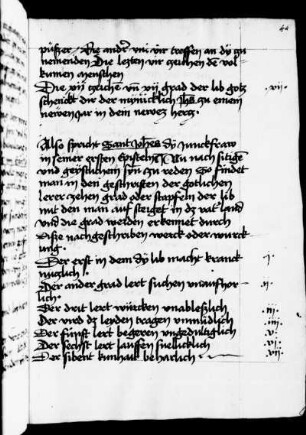 püsser Die ander vnd vir treffen an dy zu
nemenden Die lezten vir zeichen de vol
kumen menschen
Die xij zeiche vn xij grad der lib gotz
schenckt dir der mynicklich Jhs zu einem
newen Jar in dein newes herz
Also spricht Sant Johes Dy Junckfraw
in seiner ersten Epistel Vn nach sitigen
vnd geystlichem sin zu reden So findet
man in den geschriften der gotlichen
lerer zehen grad oder stapfeln der lib
mit den man auf steiget in dz vat land
vnd die grad werden erkennet durch
dise nachgeschriben werck oder wurck
ung
Der erst in dem dy lib macht kranck
nuczlich
Der ander grad lert suchen vnaufhor
lich
Der drit lert würcken vnableßlich
Der vird dz leyden tragen vnmüdlich
Der fünft lert begeren vngedultiglich
Der sechst lert lauffen snellicklich
Der sibent künhait beharlich